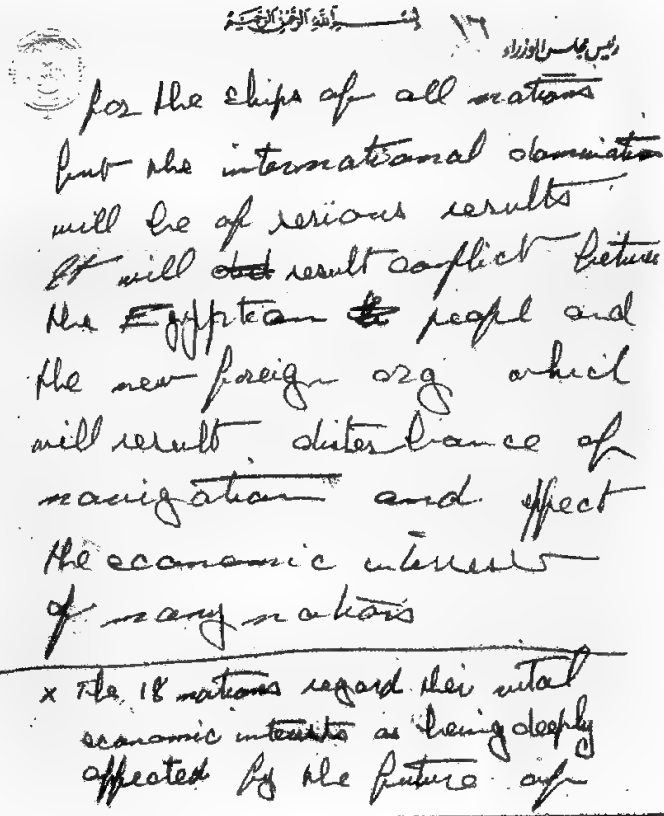 بسم الله الرحمن الرحيم
١٦
رئيس مجلس الوزراء
for the ships of all nations
but the international domination
will be of serious results
It will result conflict between
the Egyptian peopl and
the new foreign org which
will result disterbance of
navigation and effect
the economic interests
of many nations
x The 18 nations regard their vital
economic interests as being deeply
affected by the future of